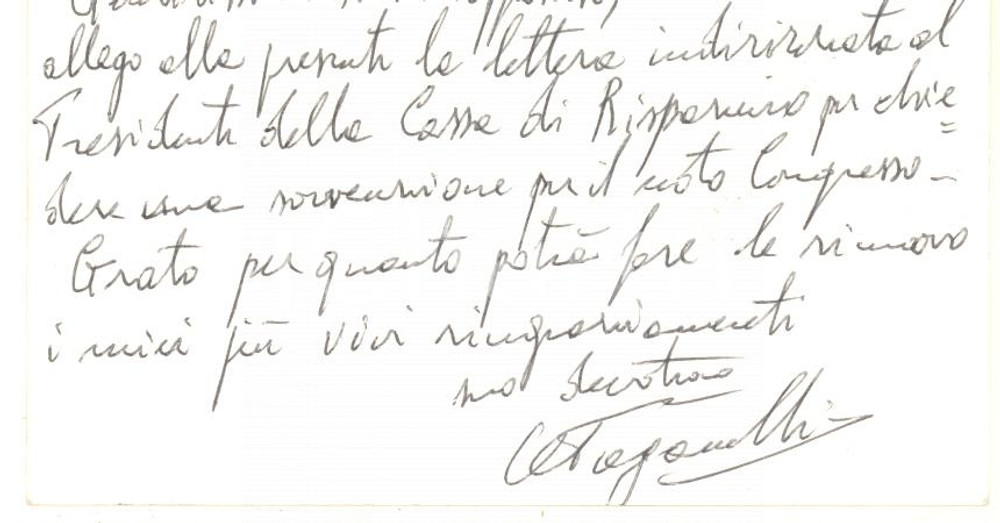 allego alla presente la lettera indirizzata al
Presidente della Cassa di Risparmio per chie=
dere una sovvenzione per il noto Congresso -
Grato per quanto potrà fare le rinnovo
i miei più vivi ringraziamenti
suo devotmo